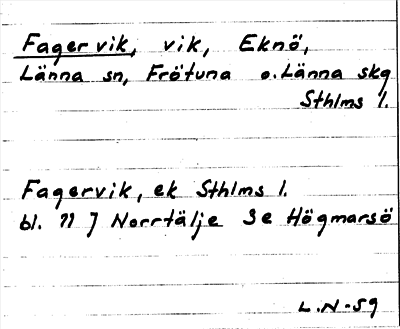 Fagervik, vik, Eknö,
Länna sn, Frötuna o. Länna skg
Sthlms l.
Fagervik, ek Sthlms l.
bl. 11 J Norrtälje 3e Högmarsö
L.N-59